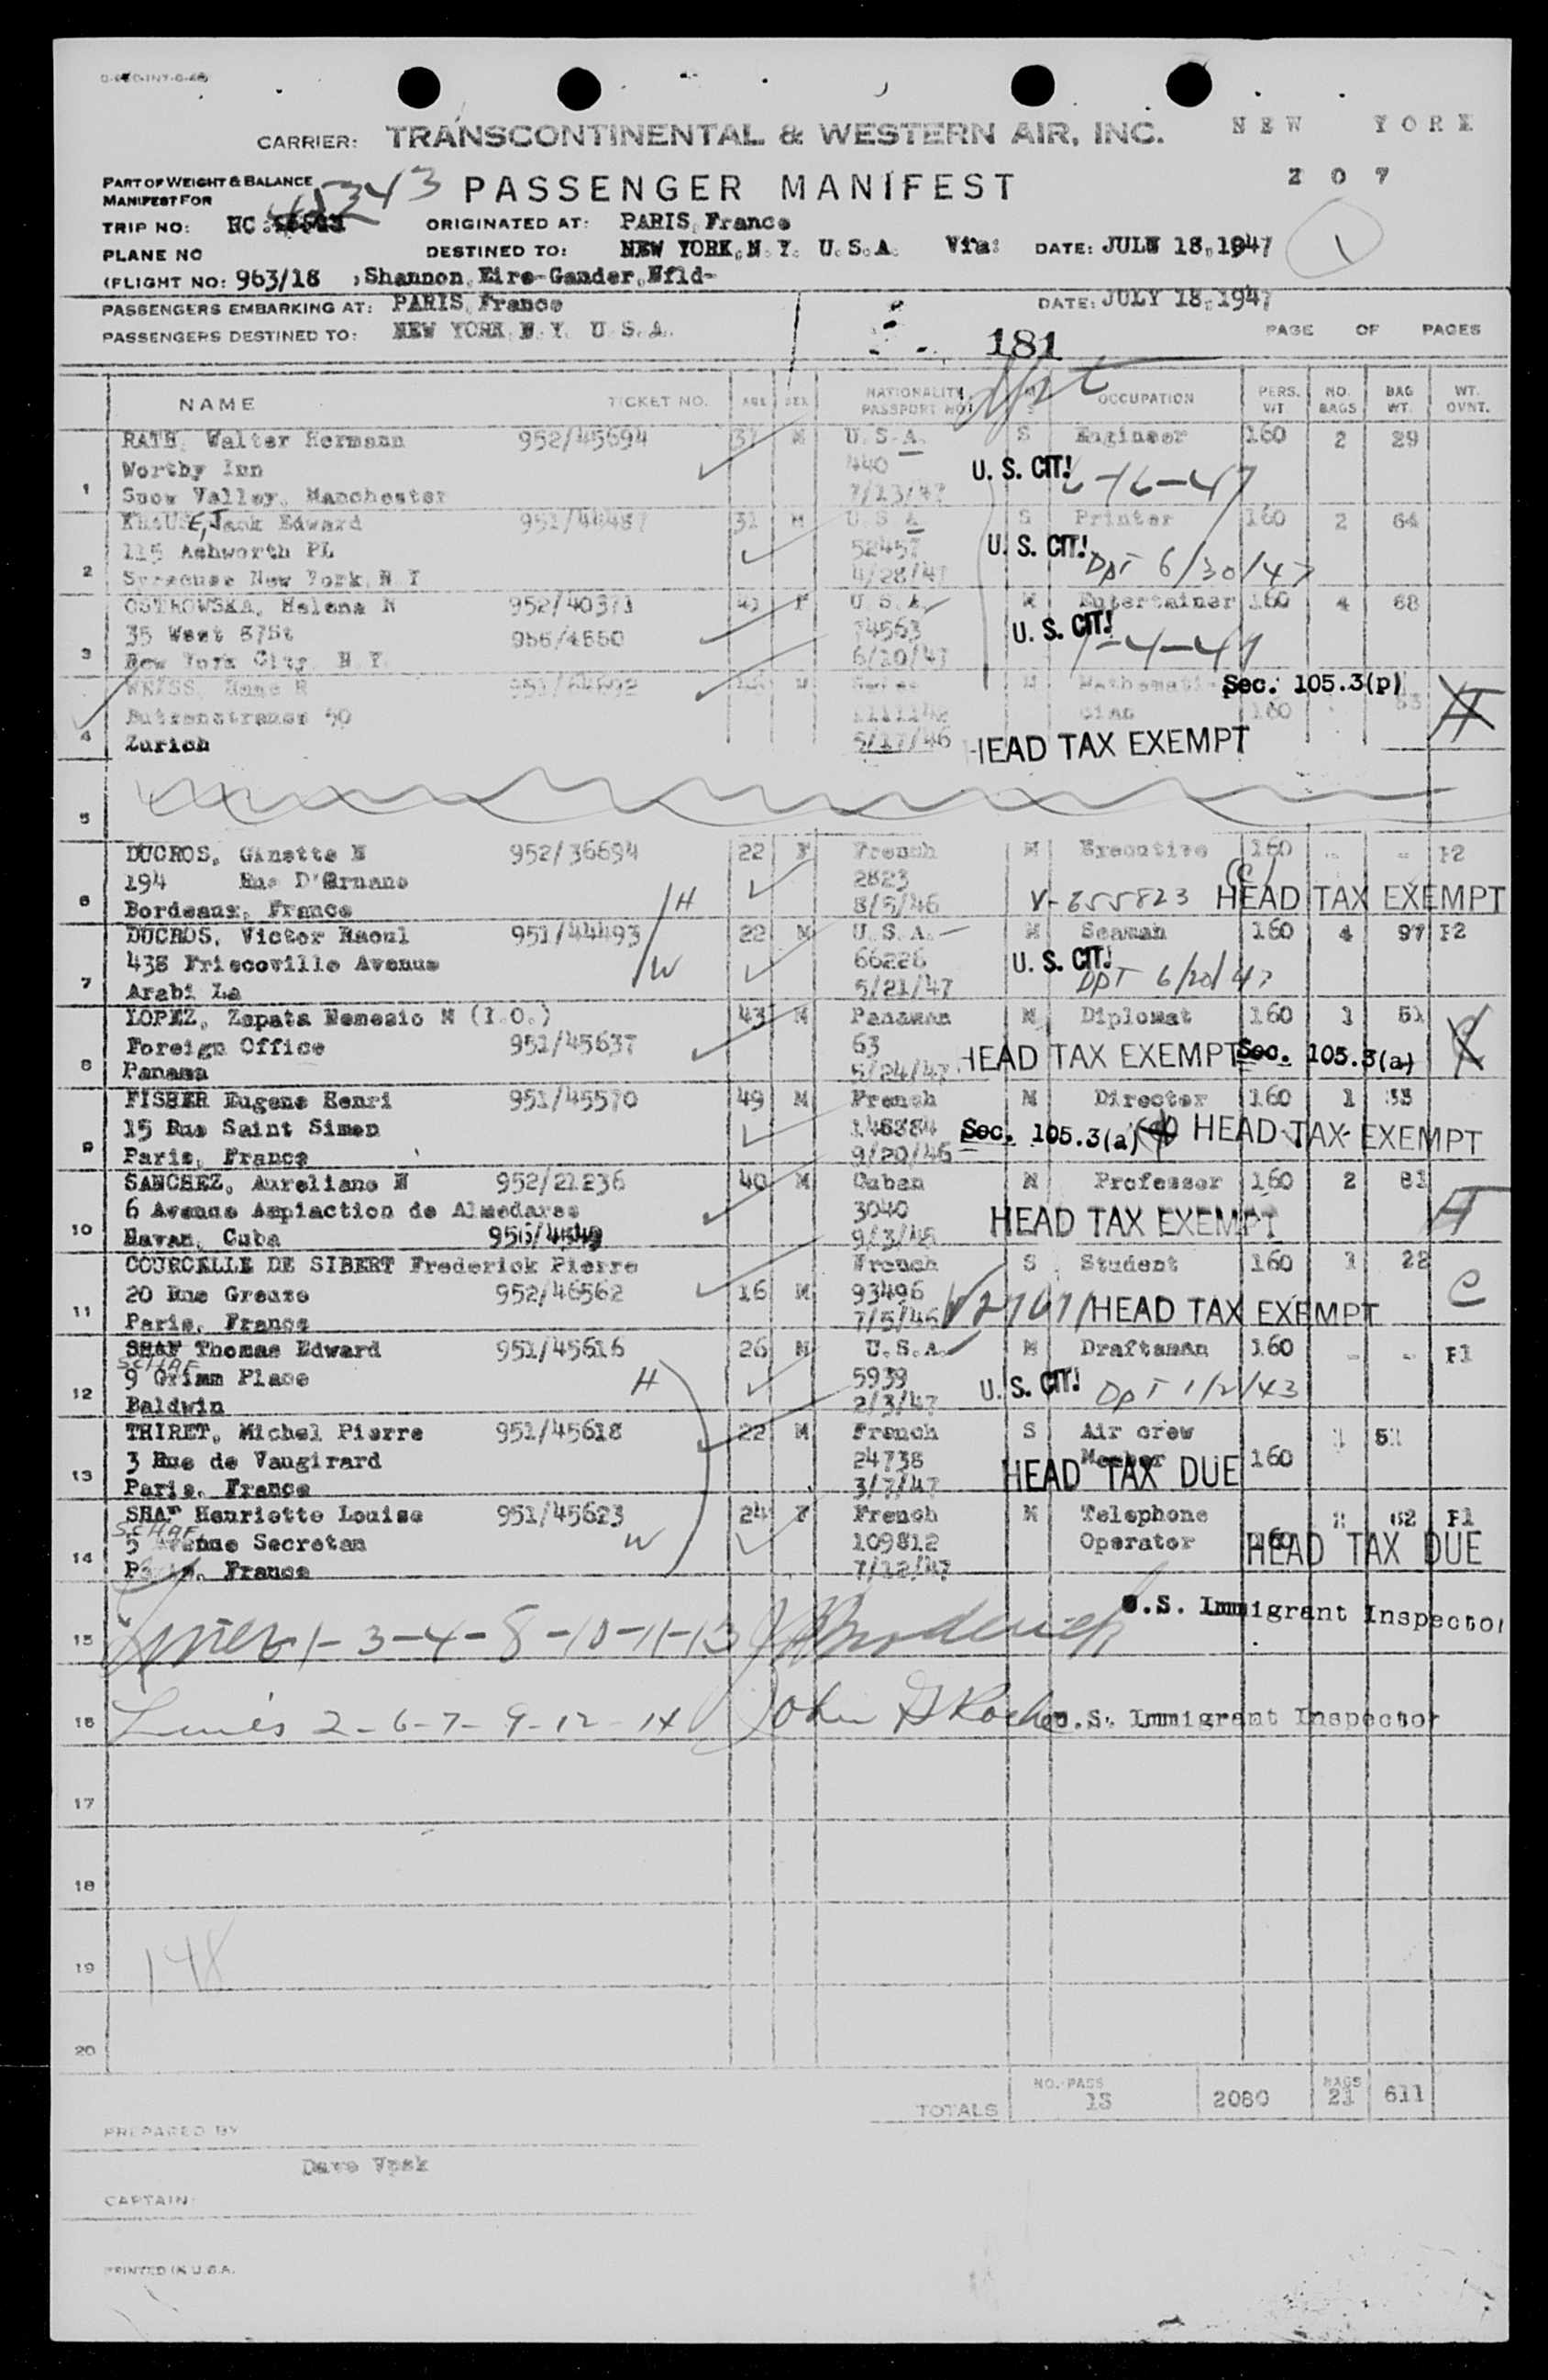 CARRIER: TRANSCONTINENTAL & WESTERN AIR, INC. NEW YORK
PART OF WEIGHT & BALANCE
MANIFEST FOR
45343 PASSENGER MANIFEST 207
TRIP NO: ORIGINATED AT: PARIS, France
PLANE NO DESTINED TO: NEW YORK, N. Y. U.S.A. Via: DATE: JULY 18, 1947 1
(FLIGHT NO: 963/18 , Shannon, Eire-Gander, Nfld-
PASSENGERS EMBARKING AT: PARIS, France DATE: JULY 18, 1947
PASSENGERS DESTINED TO: NEW YORK, N. Y. U.S.A. 181 PAGE OF PAGES
NAME TICKET NO. AGE SEX NATIONALITY PASSPORT NO. M S OCCUPATION PERS. WT NO. BAGS BAG WT. WT. OVNT.
RATH, Walter Hermann 952/45694 37 M U.S.A. S Engineer 160 2 29
Worthy Inn 440 U. S. CIT! 6-16-47
1 Snow Valley, Manchester 7/13/47
KRAUSE, Jack Edward 951/44487 31 M U S A S Printer 160 2 64
115 Ashworth PL 52457 U. S. CIT! DPT 6/30/47
2 Syracuse New York, N Y 4/28/47
OSTROWSKA, Helena N 952/40371 F U.S.A. M Entertainer 160 4 68
35 West 87St 956/4660 74563 U. S. CIT! 7-4-47
3 New York City N.Y. 6/20/47
WEISS, Hans R M Swiss M Mathemati- Sec. 105.3(p)
Butzenstrasse 50 1111142 cian 160 53 H
4 Zurich 5/17/46 HEAD TAX EXEMPT
5
DUCROS, Ginette N 952/36694 22 F French M Executive 160 - - P2
194 Rue D'Ornano 2823 (C)
6 Bordeaux, France H 8/5/46 V-655823 HEAD TAX EXEMPT
DUCROS, Victor Raoul 951/44493 22 M U.S.A. M Seaman 160 4 97 P2
438 Friscoville Avenue W 66226 U. S. CIT!
7 Arabi La 5/21/47 DPT 6/20/47
LOPEZ, Zapata Nemesio N (I.O.) 43 M Panaman M Diplomat 160 1 51
Foreign Office 951/45637 63 HEAD TAX EXEMPT Sec. 105.3(a)
8 Panama 5/24/47
FISHER Eugene Henri 951/45570 49 M French M Director 160 1 33
15 Rue Saint Simon 148384 Sec. 105.3(a) HEAD TAX EXEMPT
9 Paris, France 9/20/46
SANCHEZ, Aureliano N 952/21236 40 M Cuban M Professor 160 2 81
6 Avenue Ampiaction de Almedares 3040 HEAD TAX EXEMPT H
10 Havan, Cuba 9/3/46
COURCELLE DE SIBERT Frederick Pierre French S Student 160 1 22
20 Rue Greuze 952/46562 16 M 93496 C
11 Paris, France 7/5/46 HEAD TAX EXEMPT
SHAF Thomas Edward 951/45616 26 M U.S.A. M Draftsman 160 - - P1
SCHAF
9 Grimm Place H 5939 U. S. CIT! DPT 1/2/43
12 Baldwin 2/3/47
THIRET, Michel Pierre 951/45618 22 M French S Air crew 1 51
3 Rue de Vaugirard 24738 Member 160
13 Paris, France 3/7/47 HEAD TAX DUE
SHAF Henriette Louise 951/45623 24 F French M Telephone 62 P1
SCHAF
5 Avenue Secretan W 109812 Operator 160 HEAD TAX DUE
14 Paris, France 7/12/47
15 Lines 1-3-4-8-10-11-13 Broderick U.S. Immigrant Inspector
16 Lines 2-6-7-9-12-14 John Roche U.S. Immigrant Inspector
17
18
19 148
20
TOTALS NO. PASS 13 2080 BAGS 21 611
PREPARED BY
CAPTAIN:
PRINTED IN U.S.A.